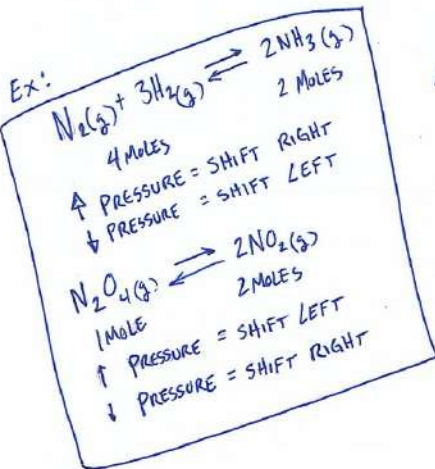 Ex:
N₂(g) + 3H₂(g) ⇌ 2NH₃(g)
4 MOLES 2 MOLES
↑ PRESSURE = SHIFT RIGHT
↓ PRESSURE = SHIFT LEFT
N₂O₄(g) ⇌ 2NO₂(g)
1 MOLE 2 MOLES
↑ PRESSURE = SHIFT LEFT
↓ PRESSURE = SHIFT RIGHT